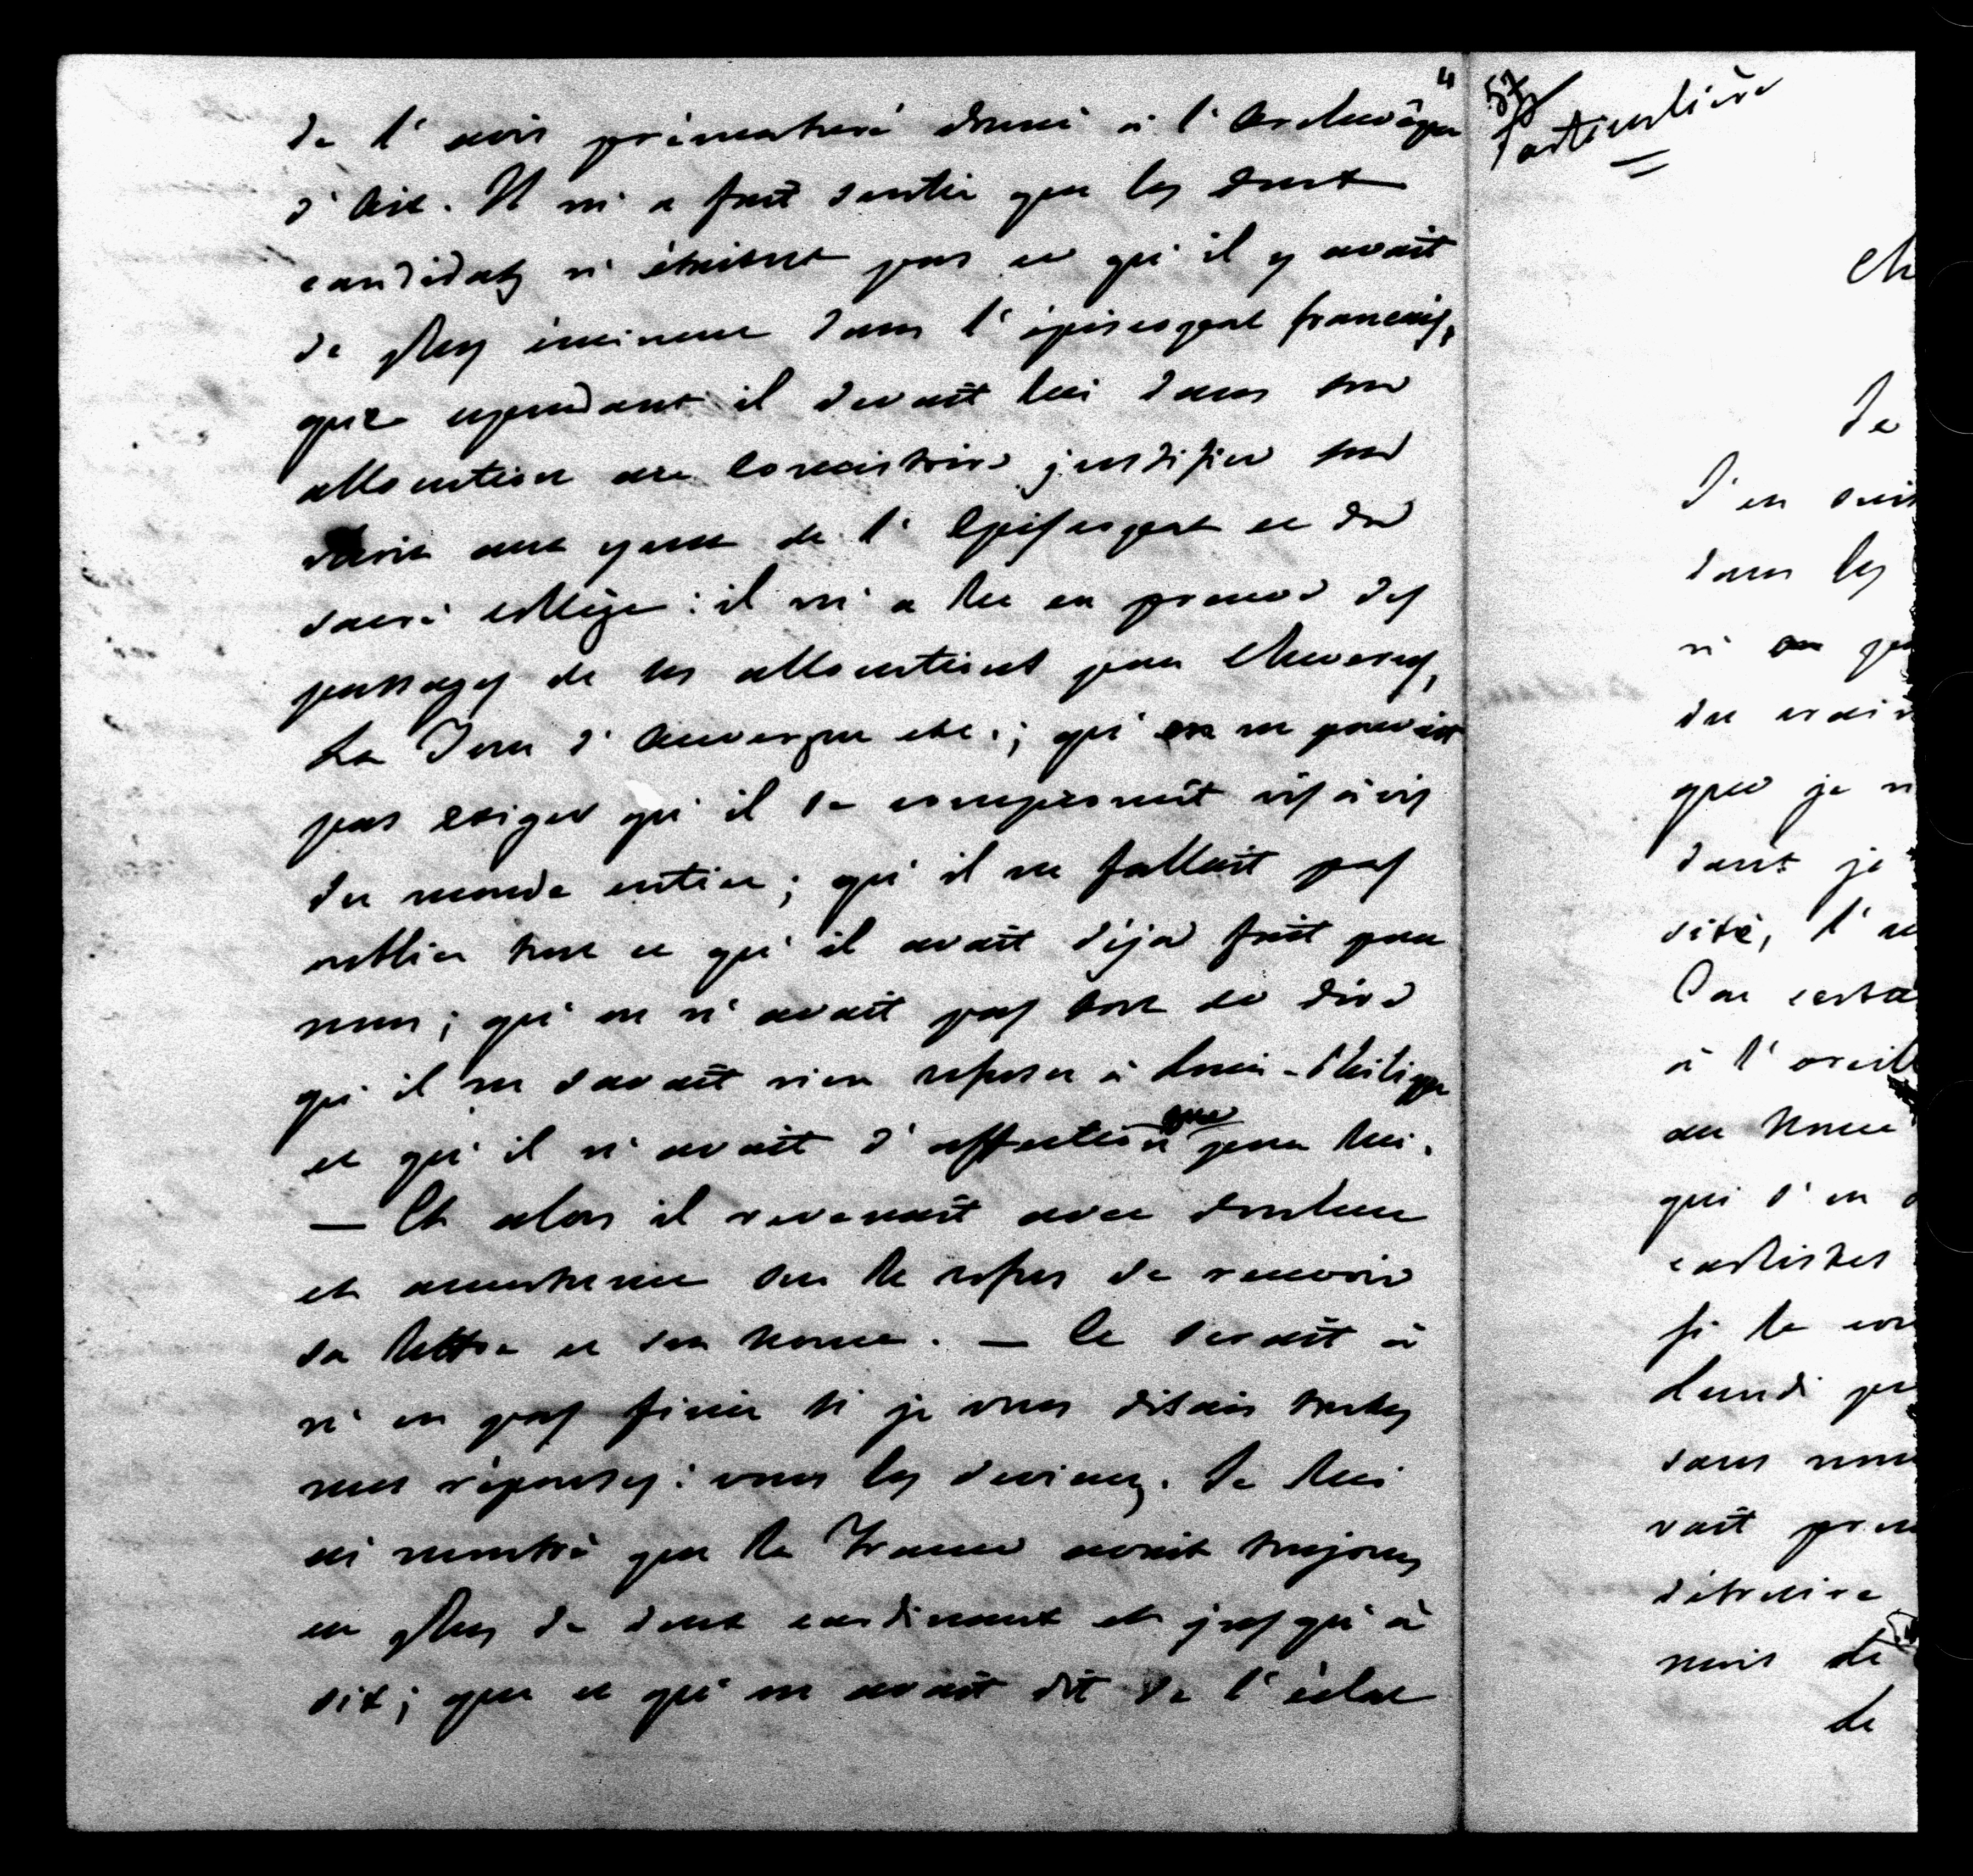 4
de l'avis prématuré donné à l'Archevêque
d'Aix. Il m'a fait sentir que les deux
candidats n'étaient pas ce qu'il y avait
de plus éminent dans l'épiscopat français,
que cependant il devait lui dans son
allocution au Consistoire justifier son
choix aux yeux de l'Episcopat et du
sacré collège: il m'a lu en preuve des
passages de ses allocutions pour Cheverus,
La Tour d'Auvergne etc.; qu'on ne pouvait
pas exiger qu'il se compromît vis à vis
du monde entier; qu'il ne fallait pas
oublier tout ce qu'il avait déjà fait pour
nous; qu'on n'avait pas tort de dire
qu'il ne savait rien refuser à Louis-Philippe
et qu'il n'avait d'affection que pour lui.
— Et alors il revenait avec douleur
et amertume sur le refus de recevoir
sa lettre et son nonce. — Ce serait à
n'en pas finir si je vous disais toutes
mes réponses: vous les devinez. Je lui
ai montré que la France avait toujours
eu plus de deux cardinaux et jusqu'à
six; que ce qu'on avait dit de l'éclat
57
Particulière
Ch
Je
J'en suis
dans les
n'
du
que je n
dant je
sité, l'
Car certa
à l'oreill
au Nonce
qui s'en
carlistes
si la
Lundi
sans
vait
détruire
mais de
de